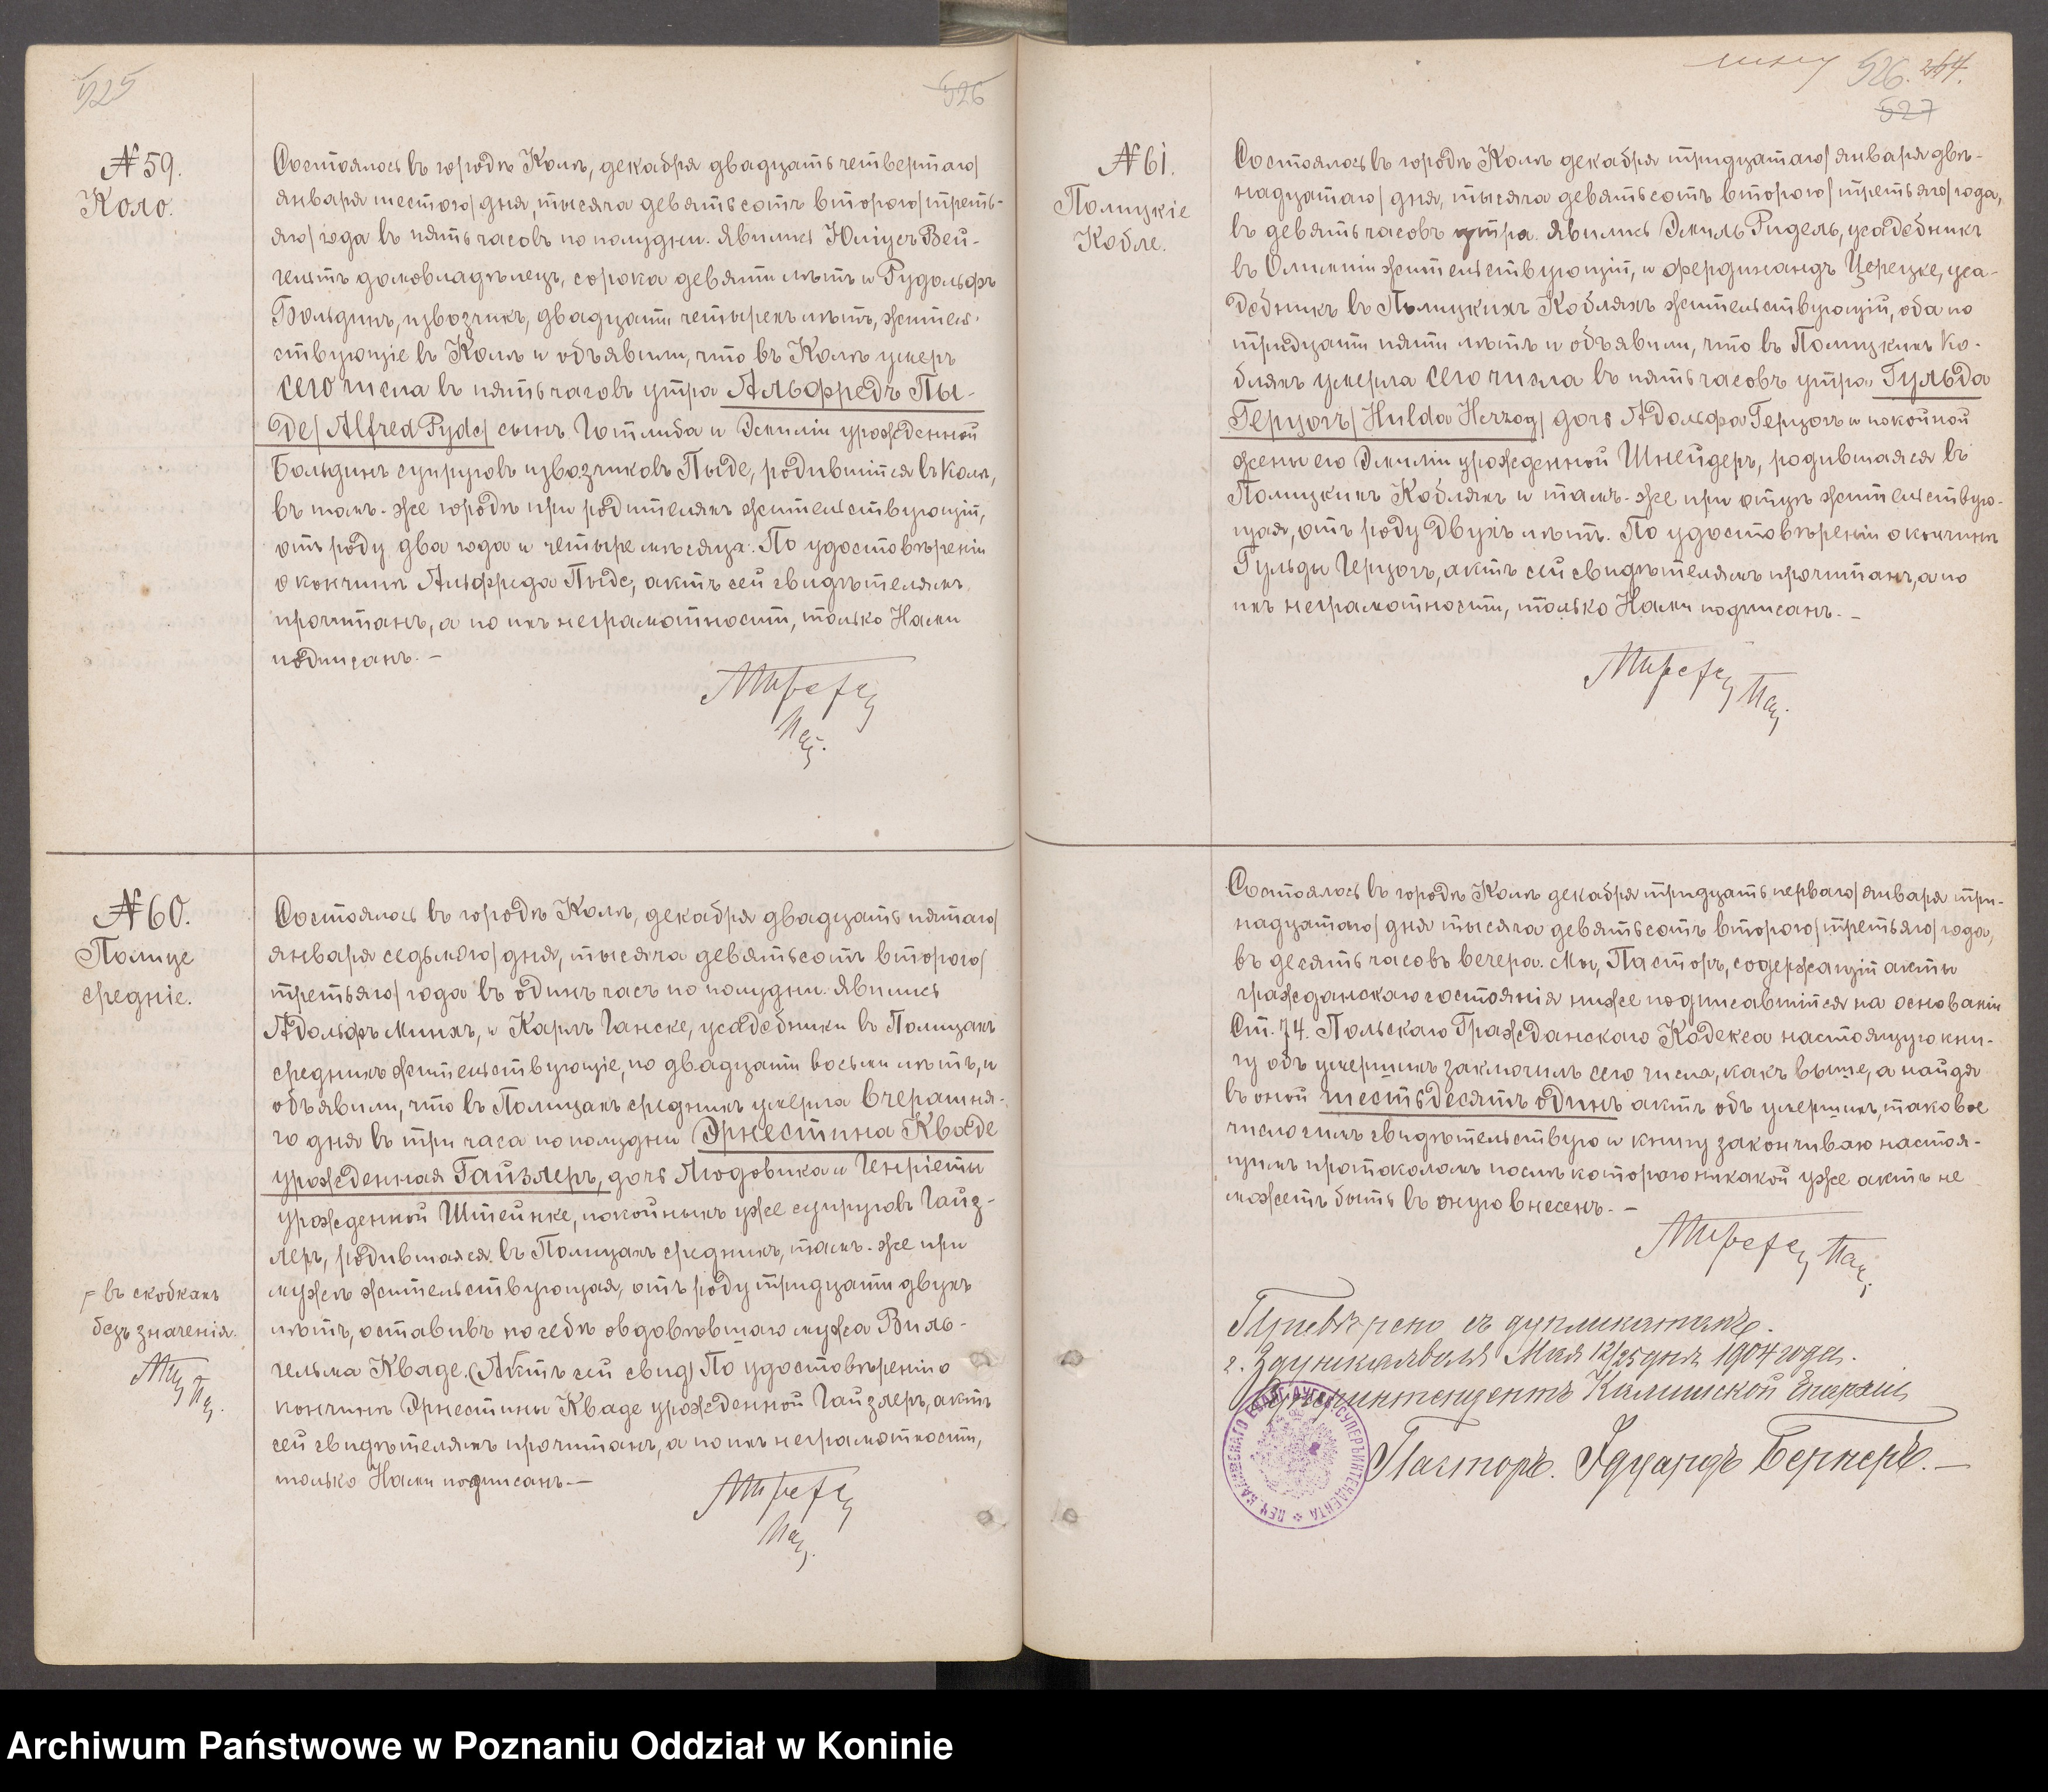 525
526
№ 59.
Коло.
Состоялось въ городѣ Колѣ, декабря двадцать четвертаго/
января шестого/ дня, тысяча девятьсотъ второго/ треть-
яго/ года въ пять часовъ по полудни. Явились Юліусъ Вей-
гельтъ домовладѣлецъ, сорока девяти лѣтъ и Рудольфъ
Больдинъ, извозчикъ, двадцати четырехъ лѣтъ, житель-
ствующіе въ Колѣ и объявили, что въ Колѣ умеръ
сего числа въ пять часовъ утра Альфредъ Пы-
де/ Alfred Pyde/ сынъ Готлиба и Эмиліи урожденной
Больдинъ супруговъ извозчиковъ Пыде, родившійся въ Колѣ,
въ томъ-же городѣ при родителяхъ жительствующій,
отъ роду два года и четыре мѣсяца. По удостовѣреніи
о кончинѣ Альфреда Пыде, актъ сей свидѣтелямъ
прочитанъ, а по ихъ неграмотности, только Нами
подписанъ. –
№ 60.
Полице
средніе.
Состоялось въ городѣ Колѣ, декабря двадцать пятаго/
января седьмого/ дня, тысяча девятьсотъ второго/
третьяго/ года въ одинъ часъ по полудни. Явились
Адольфъ Минхъ, и Карлъ Ганске, усадебники въ Полицахъ
среднихъ жительствующіе, по двадцати восьми лѣтъ, и
объявили, что въ Полицахъ среднихъ умерла вчерашня-
го дня въ три часа по полудни Эрнестина Кваде
урожденная Гайзлеръ, дочь Людовика и Генріеты
урожденной Штейнке, покойныхъ уже супруговъ Гайз-
леръ, родившаяся въ Полицахъ среднихъ, тамъ-же при
мужѣ жительствующая, отъ роду тридцати двухъ
лѣтъ, оставивъ по себѣ овдовѣвшаго мужа Виль-
гельма Кваде. (Актъ сей свид) По удостовѣреніи о
кончинѣ Эрнестины Кваде урожденной Гайзлеръ, актъ
сей свидѣтелямъ прочитанъ, а по ихъ неграмотности,
только Нами подписанъ. –
въ скобкахъ
безъ значенія.
526. 264.
527
№ 61.
Полицкіе
Кобле.
Состоялось въ городѣ Колѣ декабря тридцатаго/ января двѣ-
надцатаго/ дня, тысяча девятьсотъ второго/ третьяго/ года,
въ девять часовъ утра. Явились Эмиль Ридель, усадебникъ
въ жительствующій, и Фердинандъ Церецке, уса-
дебникъ въ Полицкихъ Кобляхъ жительствующій, оба по
тридцати пяти лѣтъ и объявили, что въ Полицкихъ Ко-
бляхъ умерла сего числа въ пять часовъ утра Гульда
Герцогъ/ Hulda Herzog/ дочь Адольфа Герцогъ и покойной
жены его Эмиліи урожденной Шнейдеръ, родившаяся въ
Полицкихъ Кобляхъ и тамъ-же при отцѣ жительствую-
щая, отъ роду двухъ лѣтъ. По удостовѣреніи о кончинѣ
Гульды Герцогъ, актъ сей свидѣтелямъ прочитанъ, а по
ихъ неграмотности, только Нами подписанъ. –
Состоялось въ городѣ Колѣ декабря тридцать перваго/ января три-
надцатаго/ дня тысяча девятьсотъ второго/ третьяго/ года,
въ десять часовъ вечера. Мы, Пасторъ, содержащій акты
гражданскаго состоянія ниже подписавшійся на основаніи
Ст. 74. Польскаго Гражданскаго Кодекса настоящую кни-
гу объ умершихъ заключилъ сего числа, какъ выше, а найдя
въ оной шестьдесятъ одинъ актъ объ умершихъ, таковое
число симъ свидѣтельствую и книгу закончиваю настоя-
щимъ протоколомъ послѣ котораго никакой уже актъ не
можетъ быть въ оную внесенъ. –
съ дупликатомъ.
г. Здунская воля Мая 12/25 дня 1904 года.
Суперинтендентъ Калишской Епархіи
Пасторъ. Эдуардъ Бернеръ. –
Archiwum Państwowe w Poznaniu Oddział w Koninie